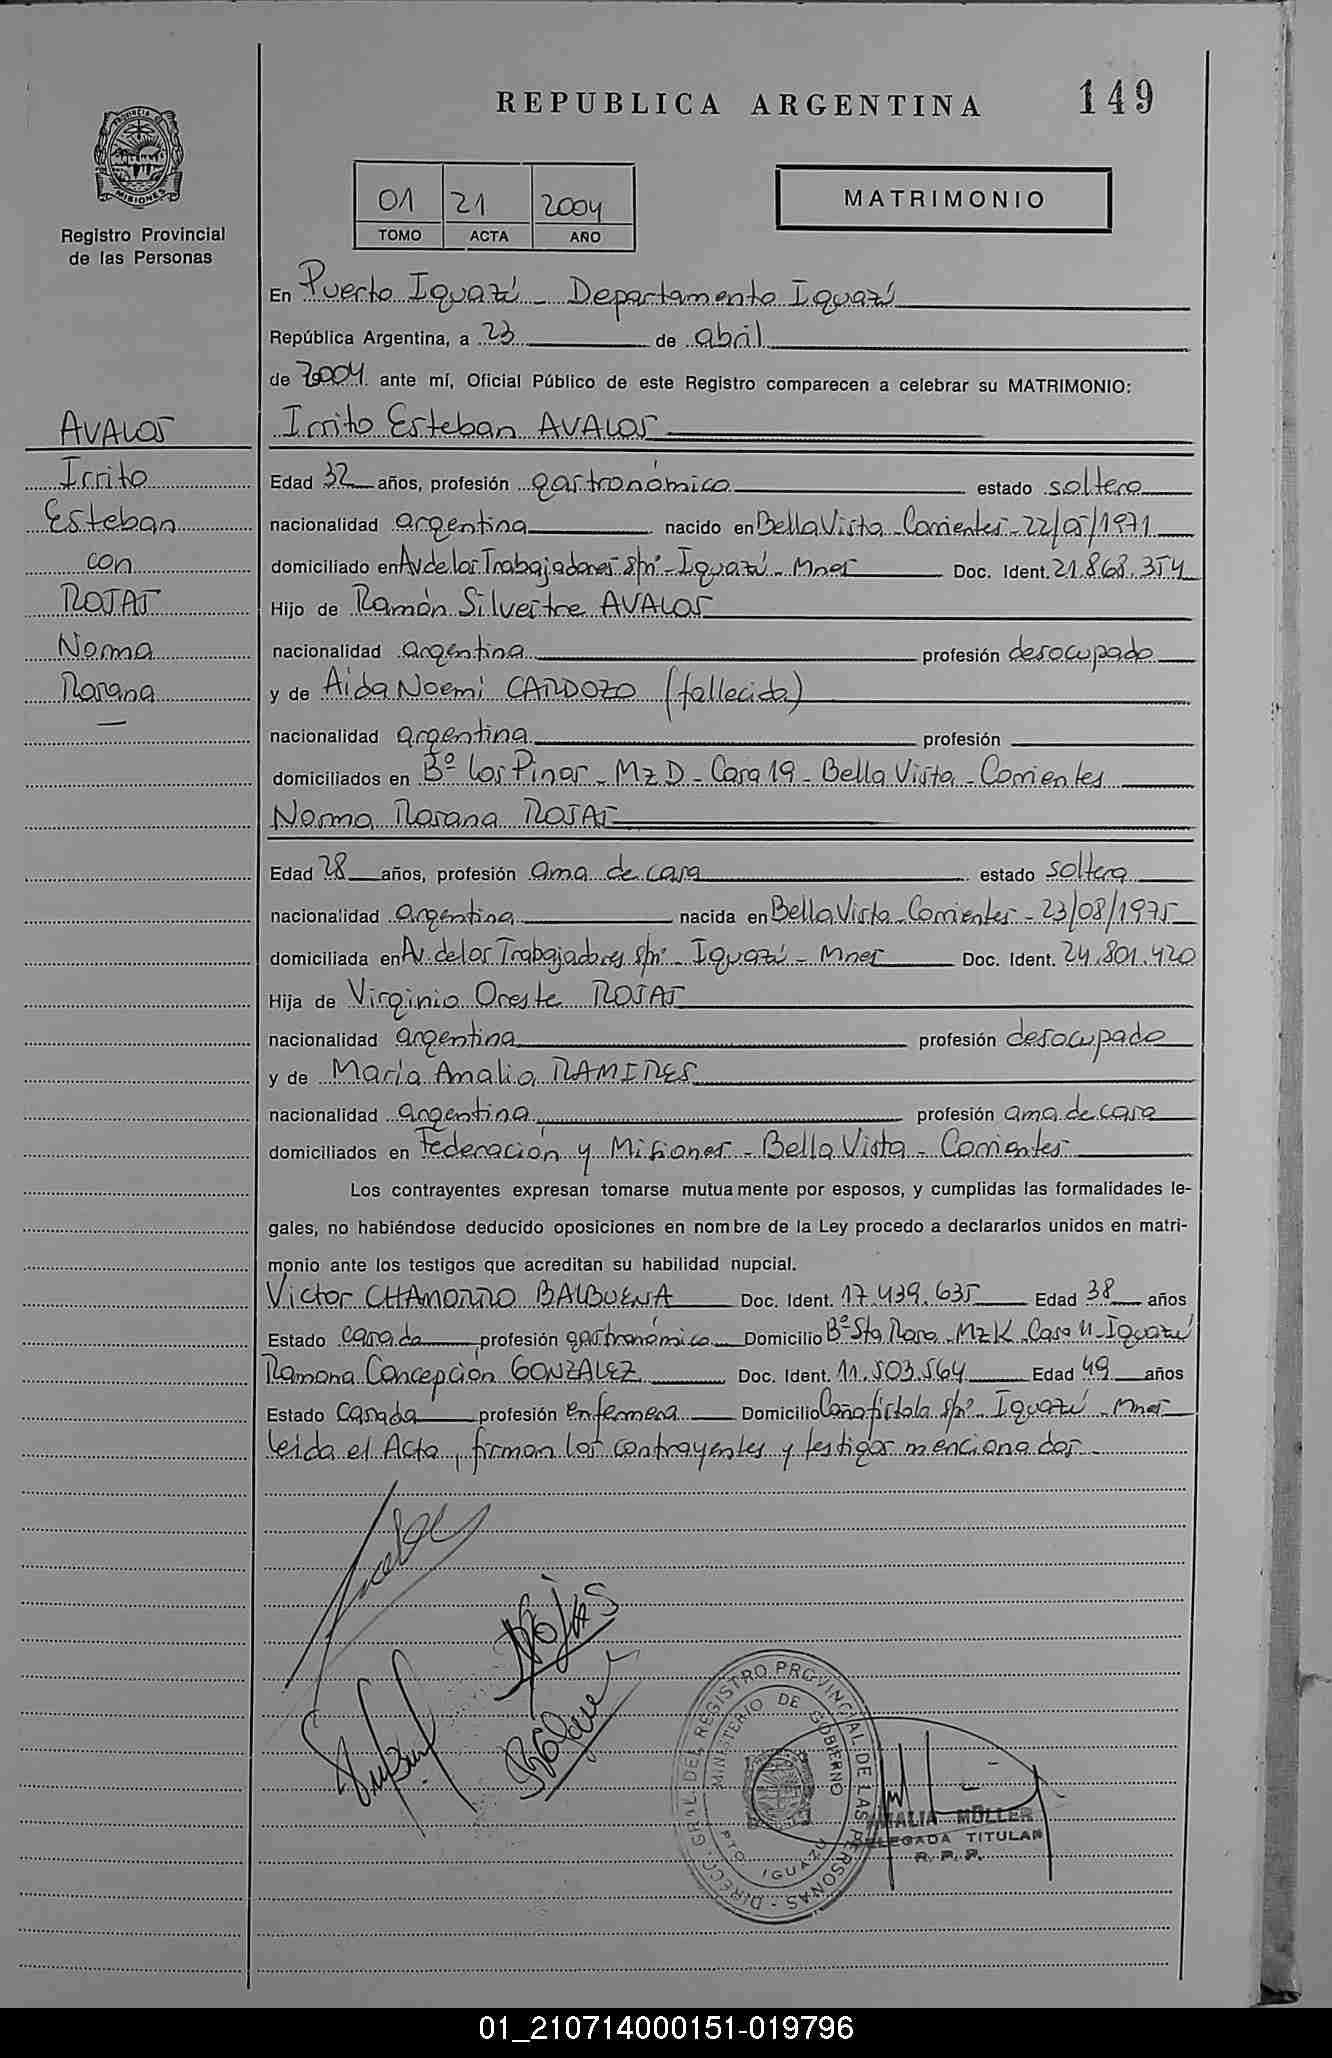 REPUBLICA ARGENTINA
149
PROVINCIA DE
MISIONES
Registro Provincial
de las Personas
01 21 2004
TOMO ACTA AÑO
MATRIMONIO
En Puerto Iguazú - Departamento Iguazú
República Argentina, a 23 de abril
de 2004 ante mí, Oficial Público de este Registro comparecen a celebrar su MATRIMONIO:
AVALOS
Irrito
Esteban
con
ROJAS
Norma
Rosana
Irrito Esteban AVALOS
Edad 32 años, profesión gastronómico estado soltero
nacionalidad argentina nacido en Bella Vista - Corrientes - 22/05/1971
domiciliado en Av de los Trabajadores s/nº - Iguazú - Mnes Doc. Ident. 21.868.354
Hijo de Ramón Silvestre AVALOS
nacionalidad argentina profesión desocupado
y de Aida Noemi CARDOZO (fallecida)
nacionalidad argentina profesión
domiciliados en Bº Los Pinos - Mz D - Casa 19 - Bella Vista - Corrientes
Norma Rosana ROJAS
Edad 28 años, profesión ama de casa estado soltera
nacionalidad argentina nacida en Bella Vista - Corrientes - 23/08/1975
domiciliada en Av. de los Trabajadores s/nº - Iguazú - Mnes Doc. Ident. 24.801.420
Hija de Virginio Oreste ROJAS
nacionalidad argentina profesión desocupado
y de María Amalia RAMIRES
nacionalidad argentina profesión ama de casa
domiciliados en Federación y Misiones - Bella Vista - Corrientes
Los contrayentes expresan tomarse mutuamente por esposos, y cumplidas las formalidades le-
gales, no habiéndose deducido oposiciones en nombre de la Ley procedo a declararlos unidos en matri-
monio ante los testigos que acreditan su habilidad nupcial.
Victor CHAMORRO BALBUENA Doc. Ident. 17.439.635 Edad 38 años
Estado casado profesión gastronómico Domicilio Bº Sta Rosa - Mz K - Casa 11 - Iguazú
Ramona Concepción GONZALEZ Doc. Ident. 11.503.564 Edad 49 años
Estado Casada profesión enfermera Domicilio Cañafistola s/nº - Iguazú - Mnes
leida el Acta, firman los contrayentes y testigos mencionados -
Rojas
DIRECC. GRAL. DEL REGISTRO PROVINCIAL DE LAS PERSONAS
MINISTERIO DE GOBIERNO
PTO. IGUAZU
AMALIA MÜLLER
DELEGADA TITULAR
R. P. P.
01_210714000151-019796